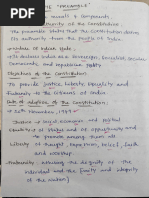 THE "PREAMBLE"
reveals 4 components.
Authority of the Constitution:
The preamble states that the Constitution derives
its authority from the people of India.
Nature of Indian State
→ It declares India as a Sovereign, Socialist, Secular
Democratic and republican polity
Objectives of the Constitution:
To provide Justice, Liberty, Equality and
Fraternity to the Citizens of India
Date of adoption of the Constitution:
→ 26th November, 1949
Justice → Social, economic and political
Equality of status and of opportunity and
to promote among them all
Liberty of thought, expression, belief, faith
and worship.
Fraternity assuring the dignity of the
individual and the unity and integrity
of the Nation)